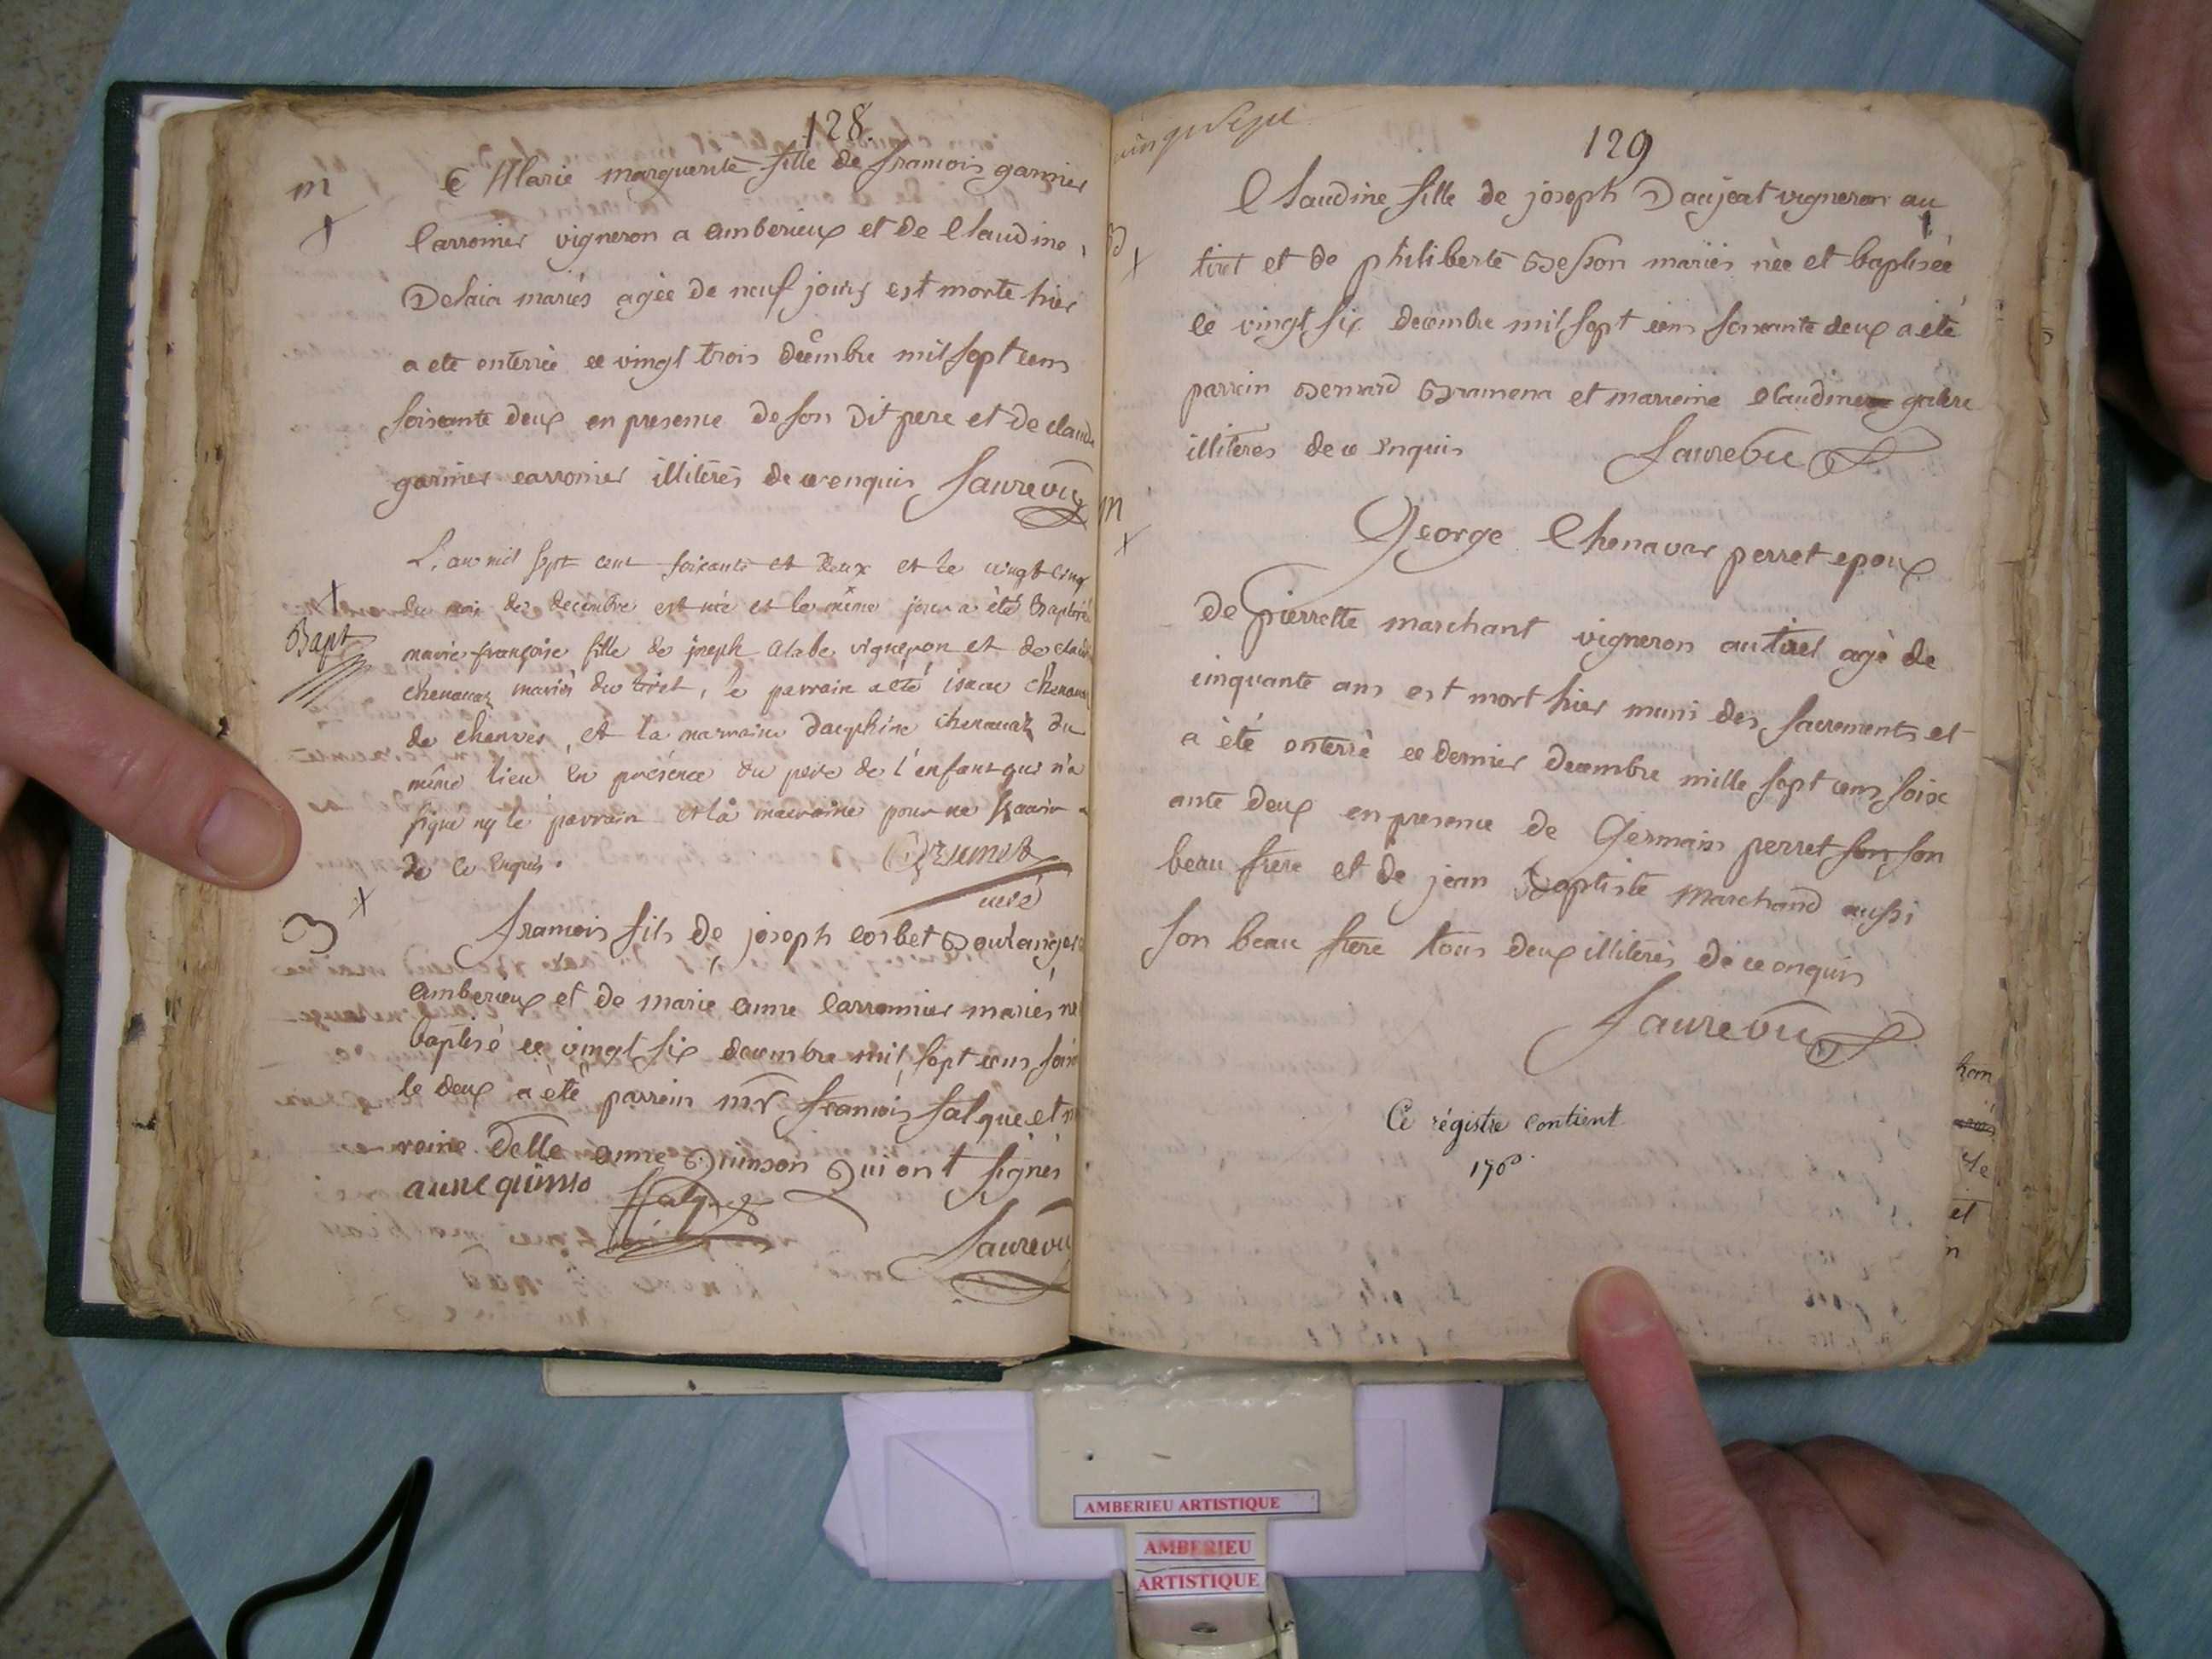 128.
m
Marie marguerite fille de francois garnier
Carronier vigneron a amberieux et de Claudine
Delaia mariés agée de neuf jours est morte hier
a ete enterrée ce vingt trois decembre mil sept cens
soixante deux en presence de son dit pere et de claude
garnier carronier illiterés de ce enquis Saurevu
L'an mil sept cent soixante et deux et le vingt cinq
Bapt
du mois de decembre est née et le même jour a été Baptisée
marie françoise fille de joseph vigneron et de claud
chenavaz mariés du tiret, le parrain a eté isaac chenava
de chenves, et la marraine dauphine chenavaz du
même lieu en présence du pere de l'enfant qui n'a
signé ny le parrain et la marraine pour ne sçavoir
de ce enquis.
curé
B
francois fils de joseph corbet Boulanger
amberieux et de marie anne Carronnier mariés né
baptisé ce vingt six decembre mil sept cens soix
te deux a été parrein mr francois falque et m
reine Delle anne Quinson Qui ont signés
anne quinso falque
Saurevu
129
B
Claudine fille de joseph Daujeat vigneron au
tiret et de philiberte Besson mariés née et baptisée
ce vingt six decembre mil sept cens soixante deux a eté
parrein Benard et marreine Claudine
illiteres de ce enquis Saurevu
m
George Chenavar perret epoux
de pierrette marchant vigneron au tiret agé de
cinquante ans est mort hier muni des sacrements et
a été enterré ce dernier decembre mille sept cens soix
ante deux en presence de Germain perret son son
beau frere et de jean Baptiste Marchand aussi
son beau frere tous deux illiterés de ce enquis
Saurevu
Ce régistre contient
hen
de
et
n
AMBERIEU ARTISTIQUE
AMBERIEU
ARTISTIQUE